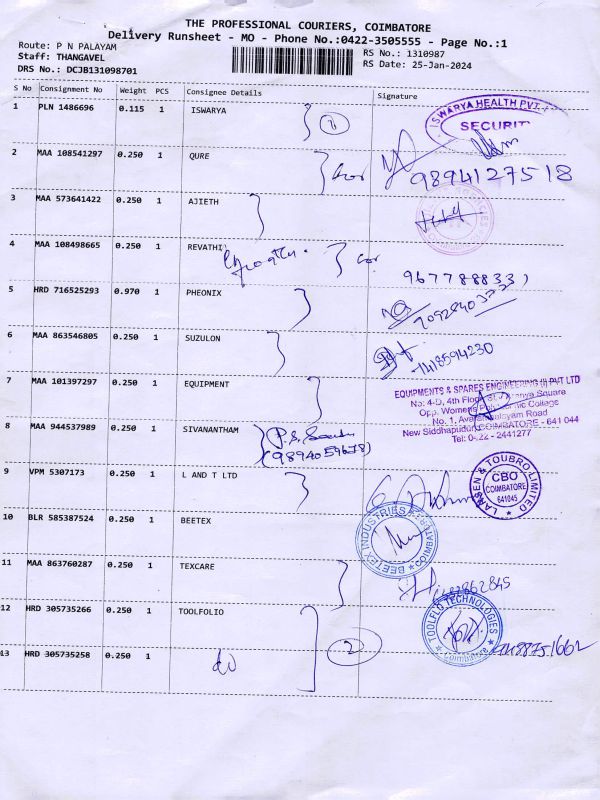 THE PROFESSIONAL COURIERS, COIMBATORE
Delivery Runsheet - MO - Phone No.:0422-3505555 - Page No.:1
Route: P N PALAYAM
RS No.: 1310987
Staff: THANGAVEL
RS Date: 25-Jan-2024
DRS No.: DCJB131098701
S No Consignment No Weight PCS Consignee Details Signature
1 PLN 1486696 0.115 1 ISWARYA
ISWARYA HEALTH PVT.
SECURIT
2 MAA 108541297 0.250 1 QURE
9894127518
3 MAA 573641422 0.250 1 AJIETH
4 MAA 108498665 0.250 1 REVATHI
9677888331
5 HRD 716525293 0.970 1 PHEONIX
6 MAA 863546805 0.250 1 SUZULON
7 MAA 101397297 0.250 1 EQUIPMENT
EQUIPMENTS & SPARES ENGINEERING (I) PVT LTD
No: 4-D, 4th Floor, Square
Opp. Womens Polytechnic College
No. 1, Road
New Siddhapudur, COIMBATORE - 641 044
Tel: 0422 - 2441277
8 MAA 944537989 0.250 1 SIVANANTHAM
(9894054678)
9 VPM 5307173 0.250 1 L AND T LTD
LARSEN & TOUBRO LIMITED
CBO
COIMBATORE
641045
10 BLR 585387524 0.250 1 BEETEX
BEETEX INDUSTRIES
COIMBATORE
11 MAA 863760287 0.250 1 TEXCARE
12 HRD 305735266 0.250 1 TOOLFOLIO
TOOLFLO TECHNOLOGIES
Coimbatore
2
13 HRD 305735258 0.250 1 do